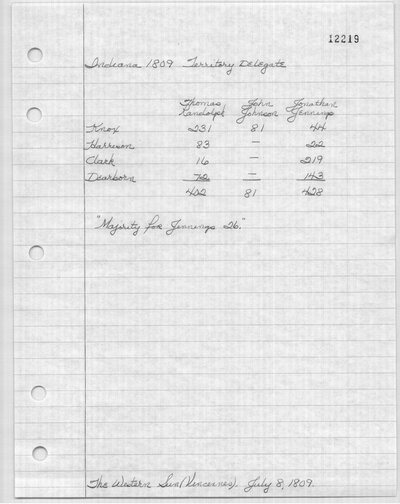 12219
Indiana 1809 Territory Delegate
Thomas John Jonathan
Randolph Johnson Jennings
Knox 231 81 44
Harrison 83 — 22
Clark 16 — 219
Dearborn 72 — 143
402 81 428
"Majority for Jennings 26."
The Western Sun (Vincennes). July 8, 1809.